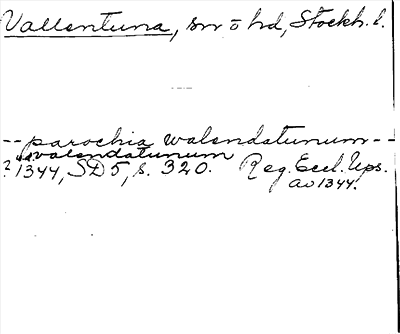 Vallentuna, sn o hd, Stockh. l.
-- parochia walendatunum --
walendatunum
? 1344, SD 5, s. 320. Reg. Eccl. Ups.
av 1344.